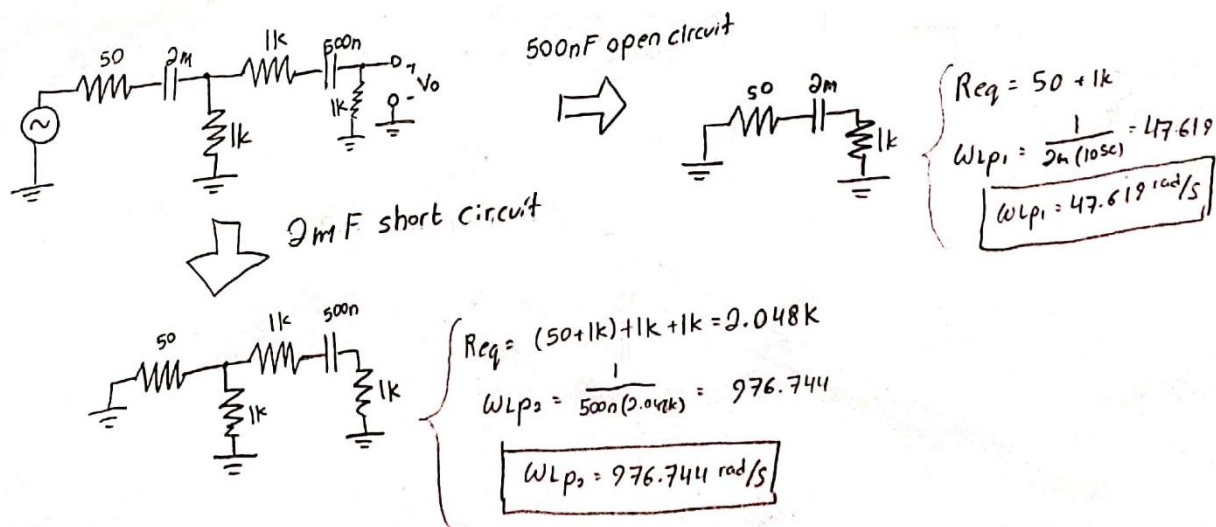 50
2m
1k
500n
1k
1k
Vo
+
-
500nF open circuit
50
2m
1k
Req = 50 + 1k
WLp1 = 1 / 2m(1050) = 47.619
WLp1 = 47.619 rad/s
2mF short circuit
50
1k
500n
1k
1k
Req = (50+1k)+1k+1k = 2.048k
WLp2 = 1 / 500n(2.048k) = 976.744
WLp2 = 976.744 rad/s